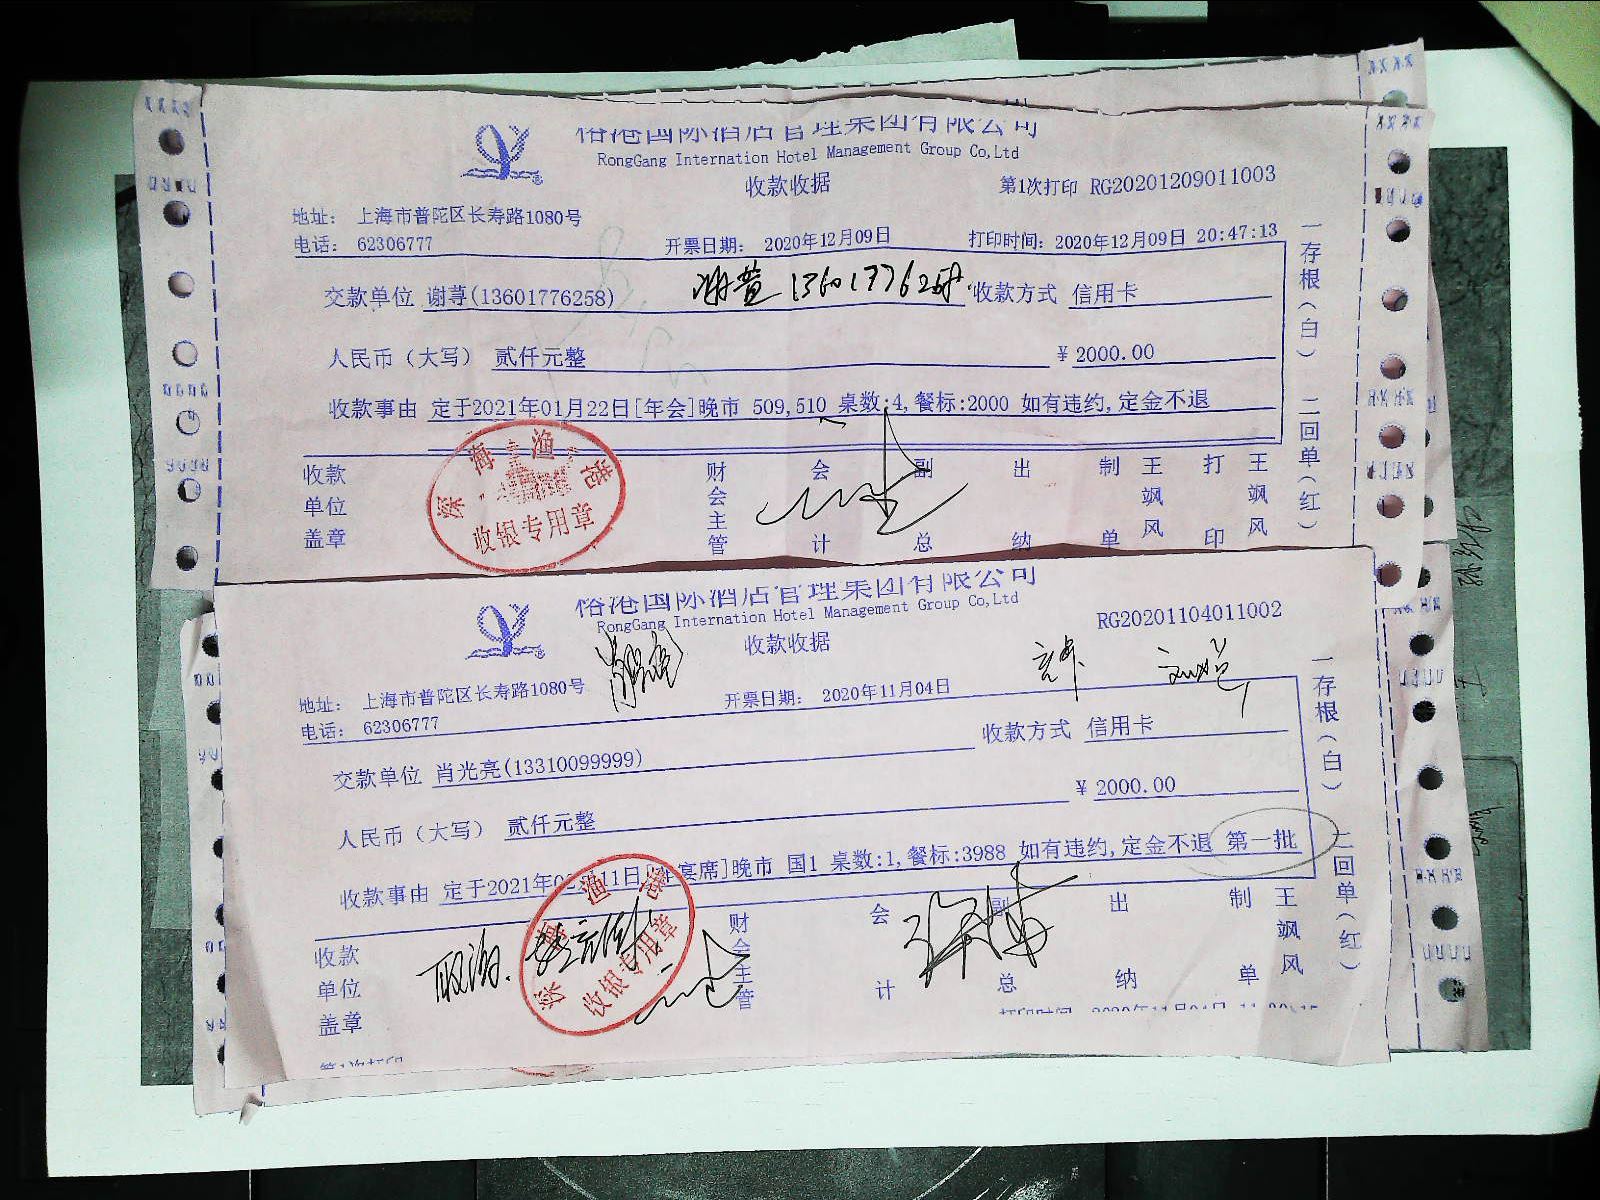 俗港国际酒店管理集团有限公司
RongGang Internation Hotel Management Group Co,Ltd
收款收据
第1次打印 RG20201209011003
地址： 上海市普陀区长寿路1080号
电话： 62306777
开票日期： 2020年12月09日
打印时间：2020年12月09日 20:47:13
交款单位 谢荨(13601776258)
收款方式 信用卡
人民币（大写） 贰仟元整
¥ 2000.00
收款事由 定于2021年01月22日[年会]晚市 509,510 桌数:4,餐标:2000 如有违约,定金不退
收款单位盖章
财会主管
会计
副总
出纳
制单
王飒风
打印
王飒风
一存根（白） 二回单（红）
深海渔港
收银专用章
俗港国际酒店管理集团有限公司
RongGang Internation Hotel Management Group Co,Ltd
收款收据
RG20201104011002
地址： 上海市普陀区长寿路1080号
电话： 62306777
开票日期： 2020年11月04日
收款方式 信用卡
交款单位 肖光亮(13310099999)
¥ 2000.00
人民币（大写） 贰仟元整
收款事由 定于2021年0 11日 宴席]晚市 国1 桌数:1,餐标:3988 如有违约,定金不退 第一批
收款单位盖章
取消.
财会主管
会计
副总
出纳
制单
王飒风
一存根（白） 二回单（红）
深海渔港
收银专用章
第1次打印